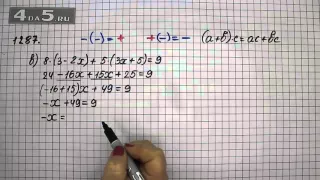 4DA5.RU
1287. -(-)=+ +(-)=- (a+b)·c=ac+bc
в) 8·(3-2x)+5·(3x+5)=9
24-16x+15x+25=9
(-16+15)x+49=9
-x+49=9
-x=